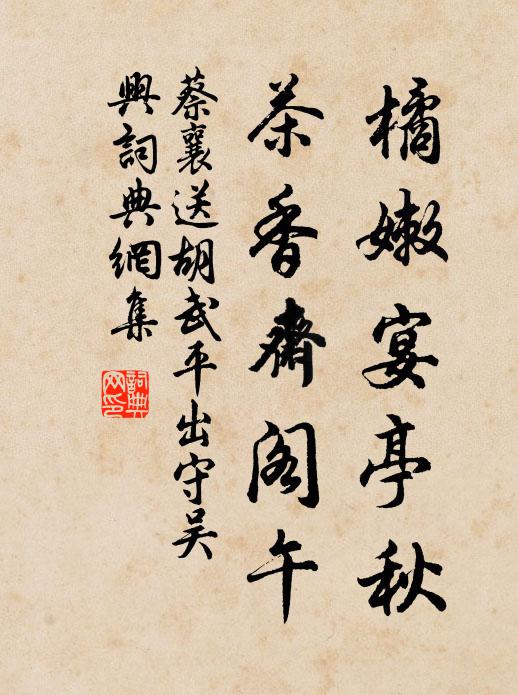 橘嫩宴亭秋
茶香齋閣午
蔡襄送胡武平出守吴
興詞典網集
詞典网印